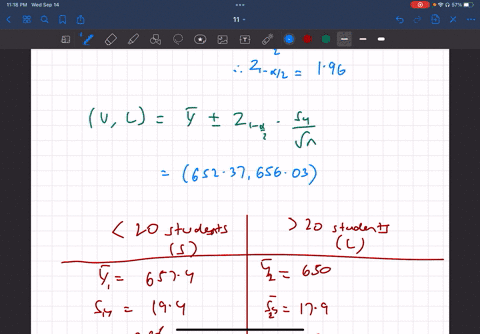 11:18 PM Wed Sep 14
57%
11
2
∴ Z₁₋α/₂ = 1.96
(U, L) = ȳ ± Z₁₋α/₂ · sy/√n
= (652.37, 656.03)
< 20 students (S) > 20 students (L)
ȳ₁ = 657.4 ȳ₂ = 650
S₁y = 19.4 S₂y = 17.9